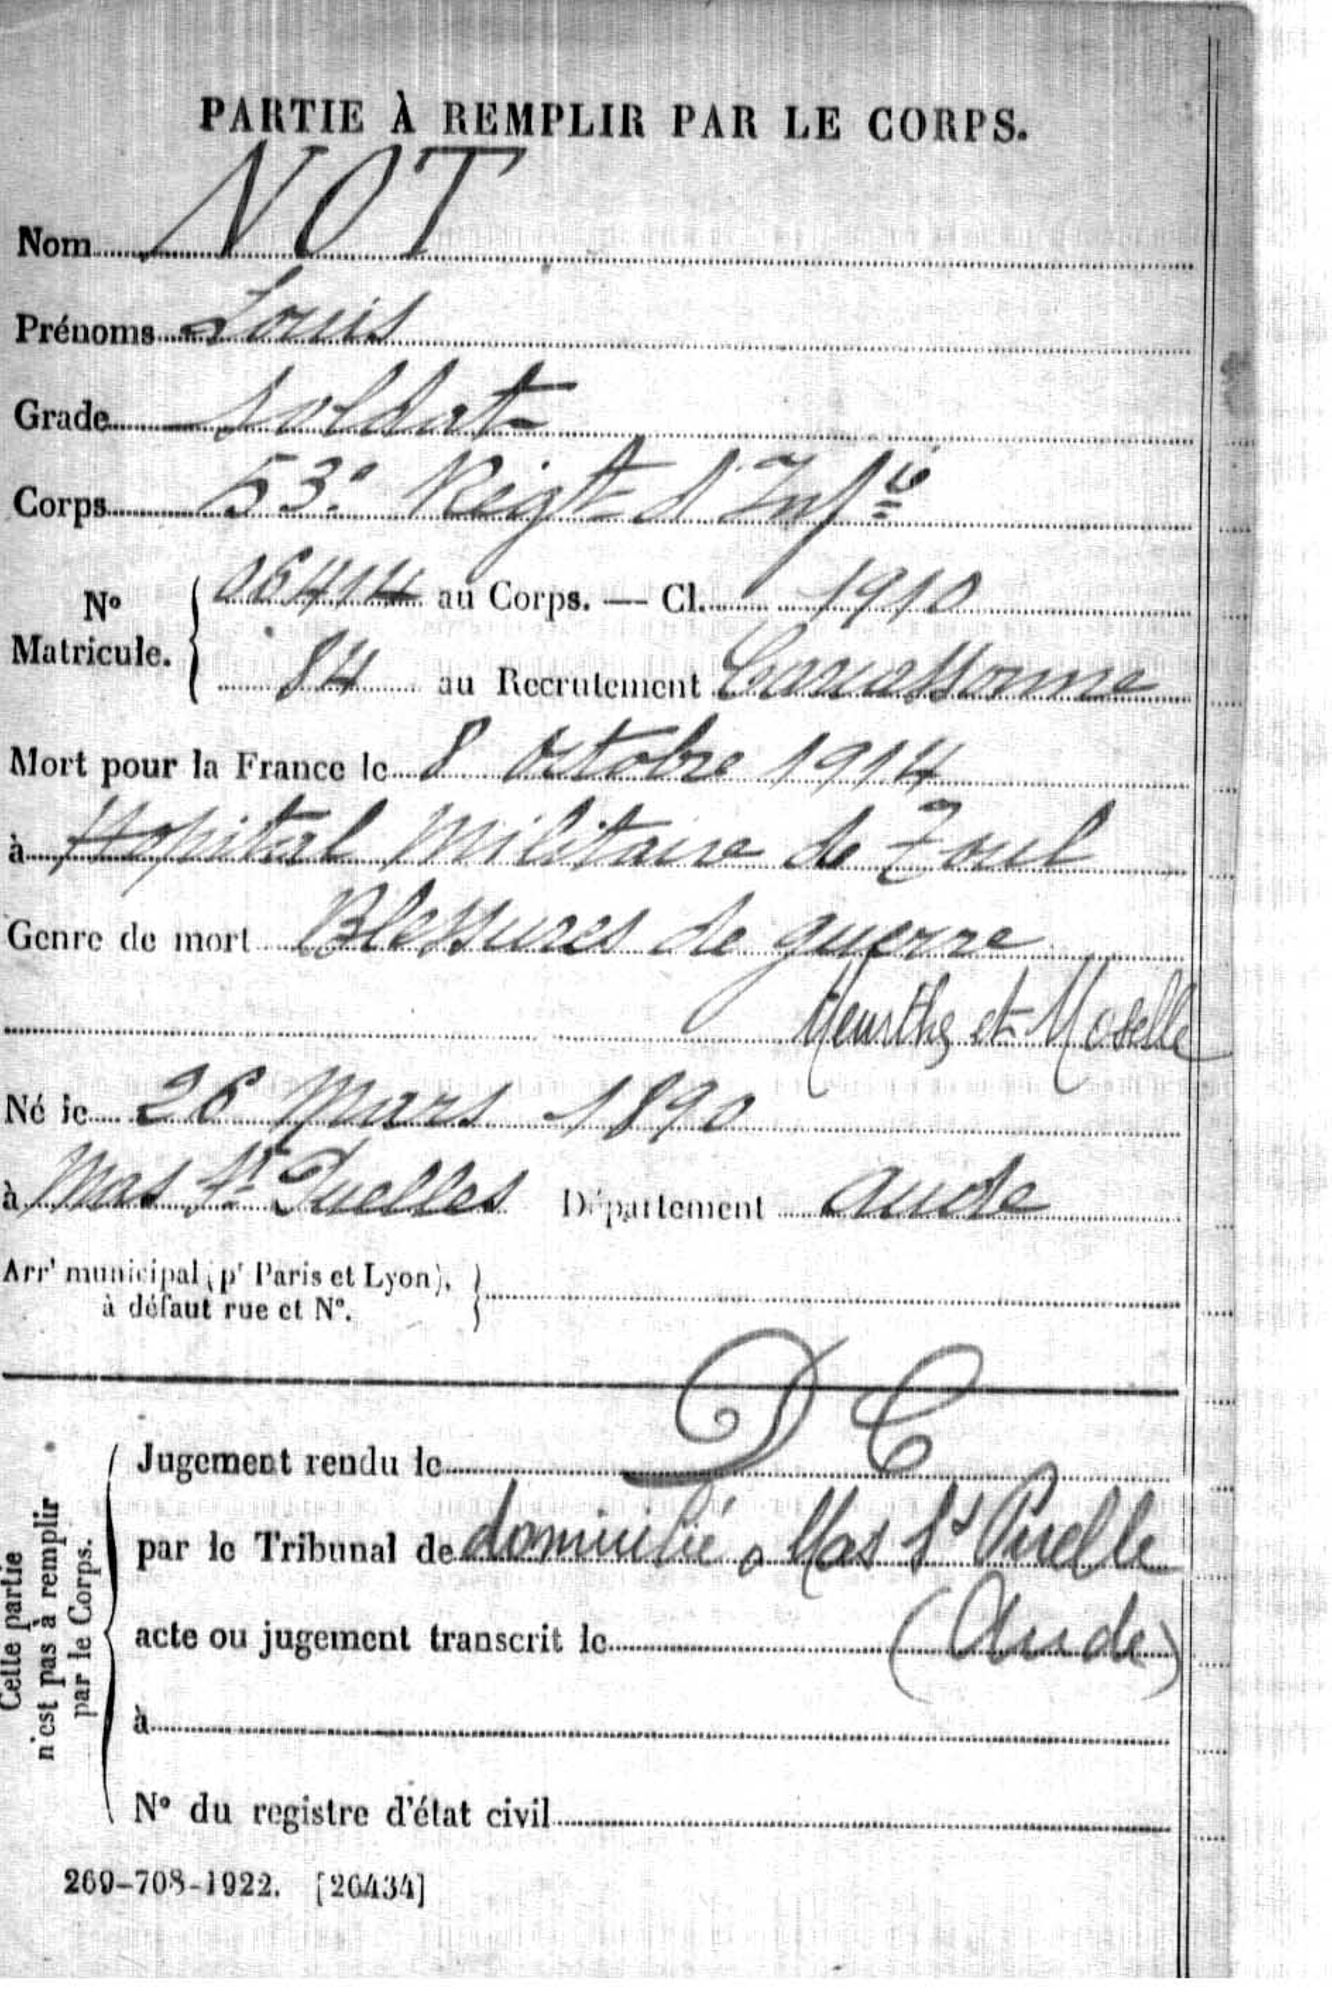 PARTIE À REMPLIR PAR LE CORPS.
Nom NOT
Prénoms Louis
Grade Soldat
Corps 53e Regt d'Infie
No Matricule. { 06414 au Corps. — Cl. 1910
84 au Recrutement Carcassonne
Mort pour la France le 8 octobre 1914
à Hopital Militaire de Toul
Genre de mort Blessures de guerre
Meurthe et Moselle
Né le 26 Mars 1890
à Mas St Puelles Département Aude
Arrt municipal (pr Paris et Lyon),
à défaut rue et No. }
D C
Cette partie
n'est pas à remplir
par le Corps.
Jugement rendu le
par le Tribunal de domicilié à Mas St Puelle
acte ou jugement transcrit le (Aude)
à
No du registre d'état civil
269-708-1922. [26434]